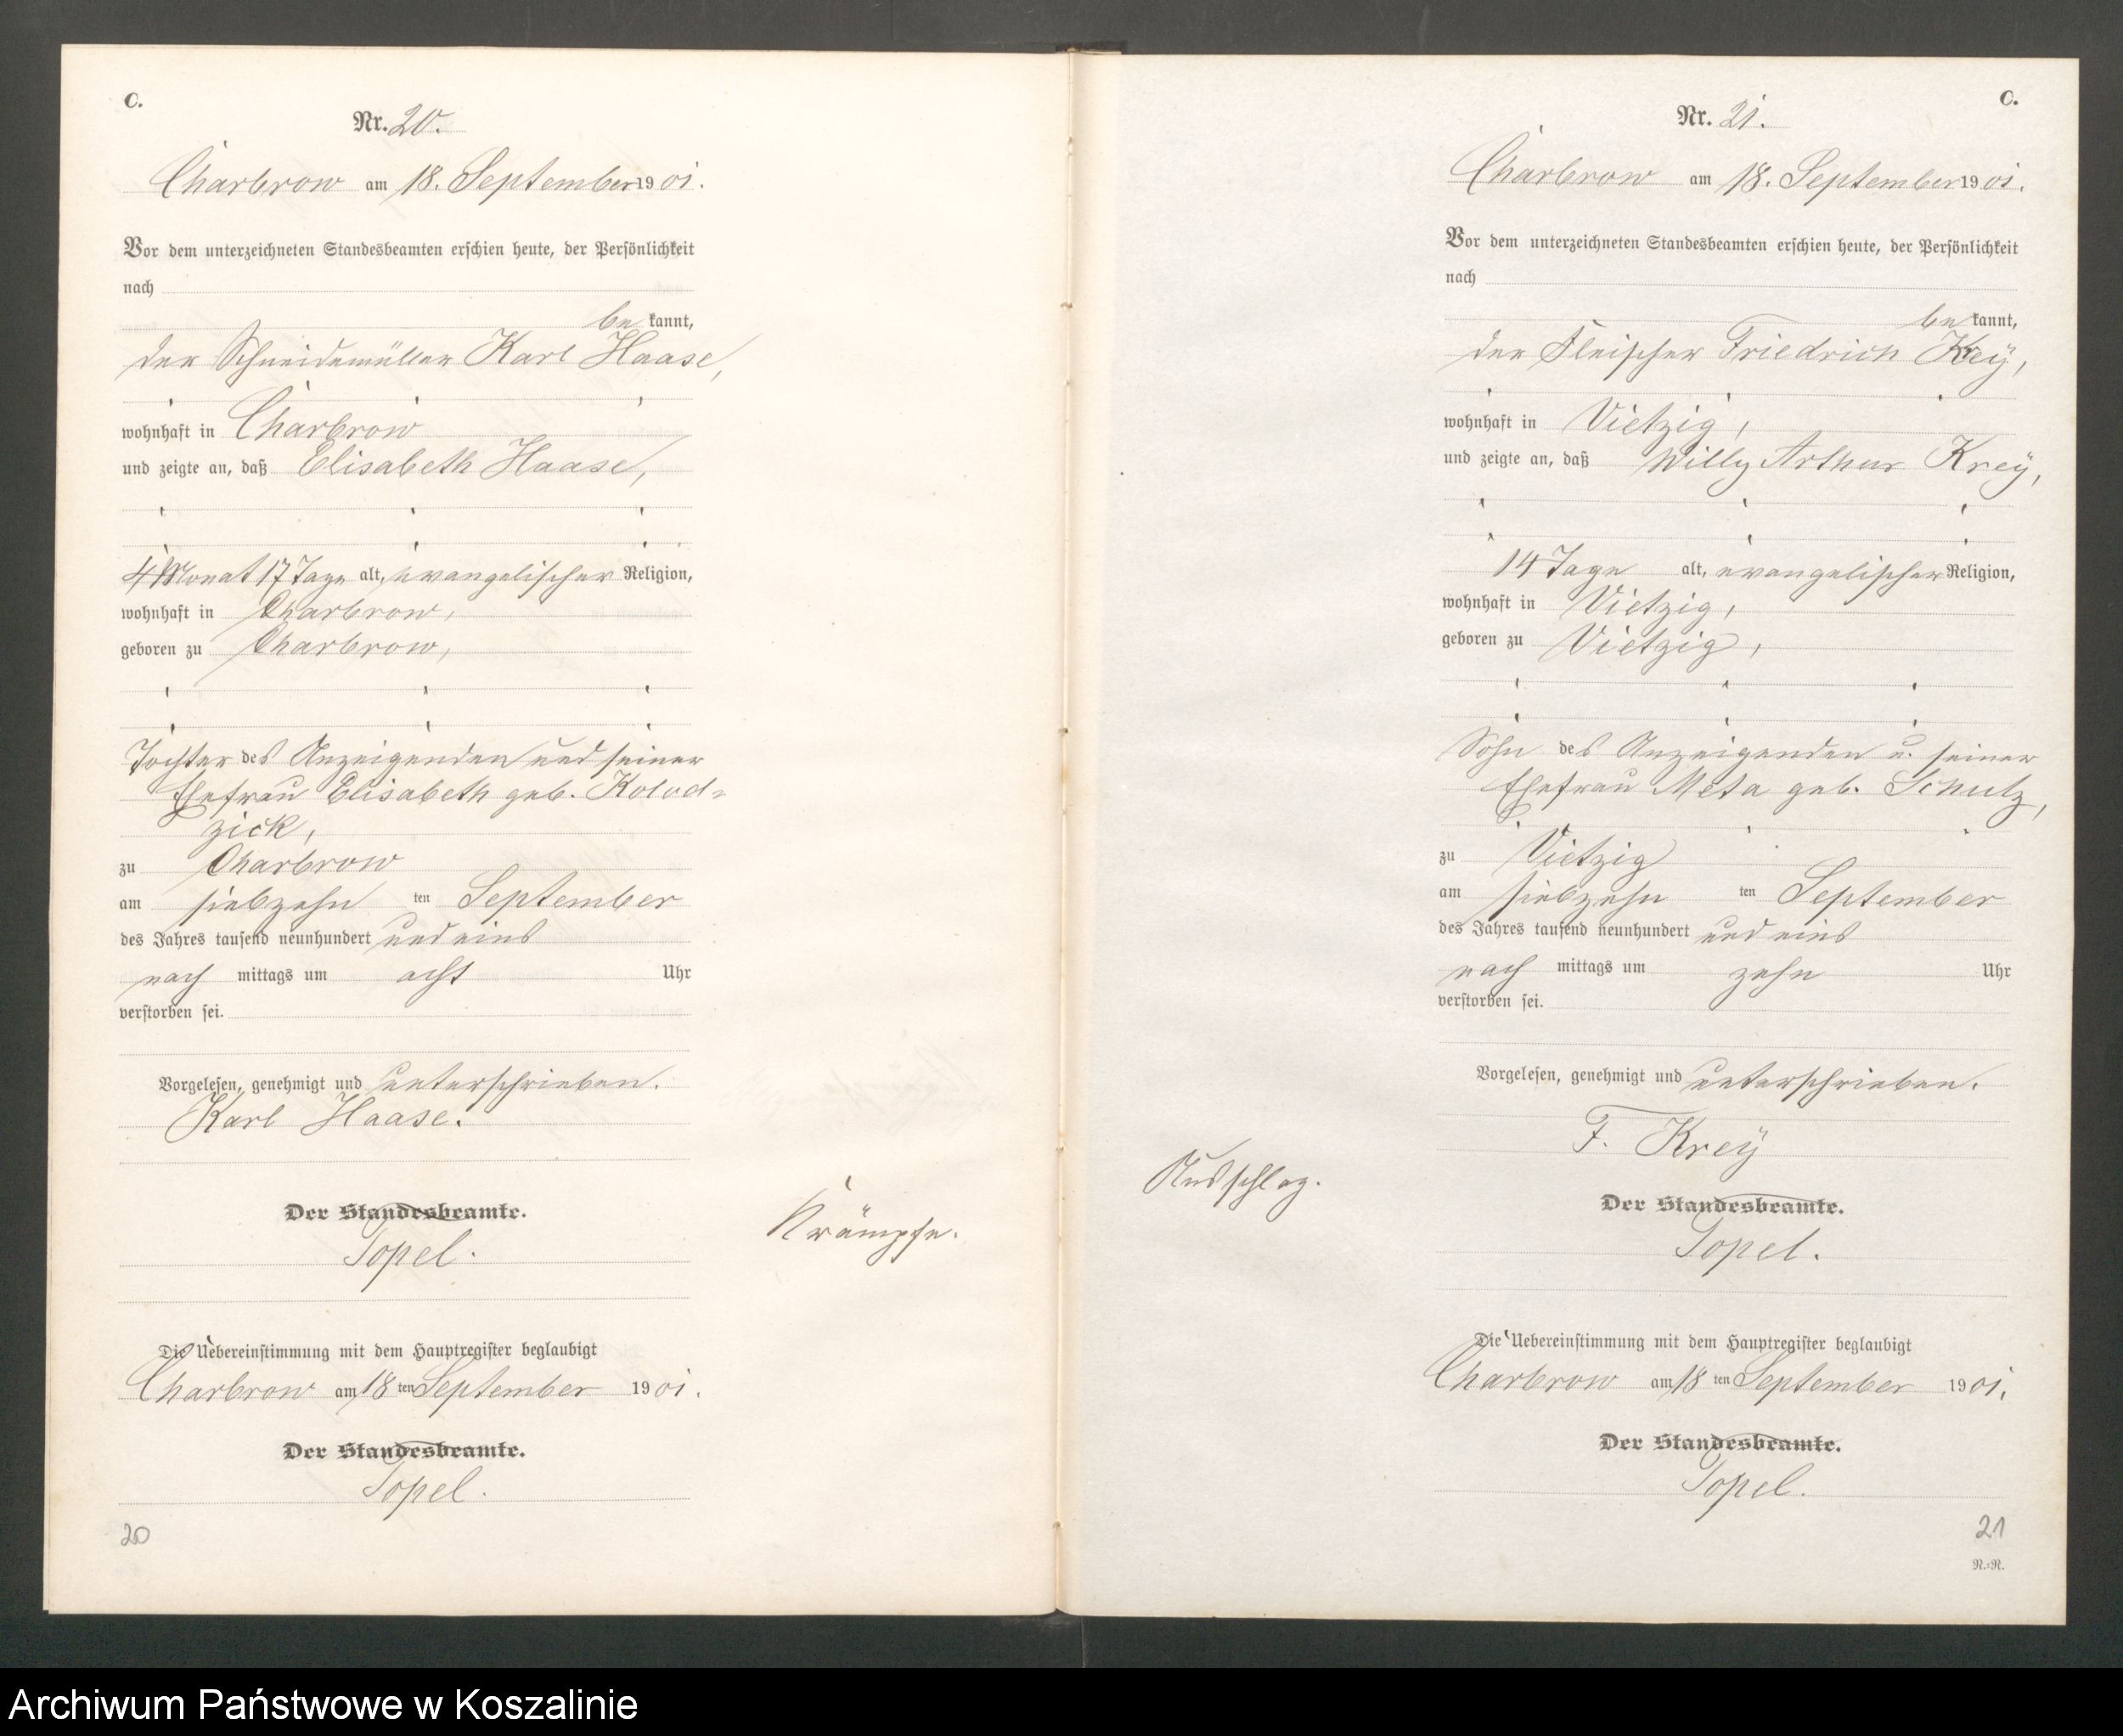 C.
Nr. 20.
Charbrow am 18. September 1901.
Vor dem unterzeichneten Standesbeamten erschien heute, der Persönlichkeit
nach
be kannt,
der Schneidemüller Karl Haase,
wohnhaft in Charbrow
und zeigte an, daß Elisabeth Haase,
4 Monat 17 Tage alt, evangelischer Religion,
wohnhaft in Charbrow,
geboren zu Charbrow,
Tochter des Anzeigenden und seiner
Ehefrau Elisabeth geb. Kolod-
zick,
zu Charbrow
am siebzehn ten September
des Jahres tausend neunhundert und eins
nach mittags um acht Uhr
verstorben sei.
Vorgelesen, genehmigt und unterschrieben.
Karl Haase.
Der Standesbeamte.
Topel.
Krämpfe.
Die Uebereinstimmung mit dem Hauptregister beglaubigt
Charbrow am 18 ten September 1901.
Der Standesbeamte.
Topel.
20
C.
Nr. 21.
Charbrow am 18. September 1901.
Vor dem unterzeichneten Standesbeamten erschien heute, der Persönlichkeit
nach
be kannt,
der Fleischer Friedrich Kreÿ,
wohnhaft in Vietzig,
und zeigte an, daß Willy Arthur Kreÿ,
14 Tage alt, evangelischer Religion,
wohnhaft in Vietzig,
geboren zu Vietzig,
Sohn des Anzeigenden u. seiner
Ehefrau Meta geb. Schulz,
zu Vietzig
am siebzehn ten September
des Jahres tausend neunhundert und eins
nach mittags um zehn Uhr
verstorben sei.
Vorgelesen, genehmigt und unterschrieben.
F. Kreÿ
Ausschlag.
Der Standesbeamte.
Topel.
Die Uebereinstimmung mit dem Hauptregister beglaubigt
Charbrow am 18 ten September 1901.
Der Standesbeamte.
Topel.
21
N.-R.
Archiwum Państwowe w Koszalinie